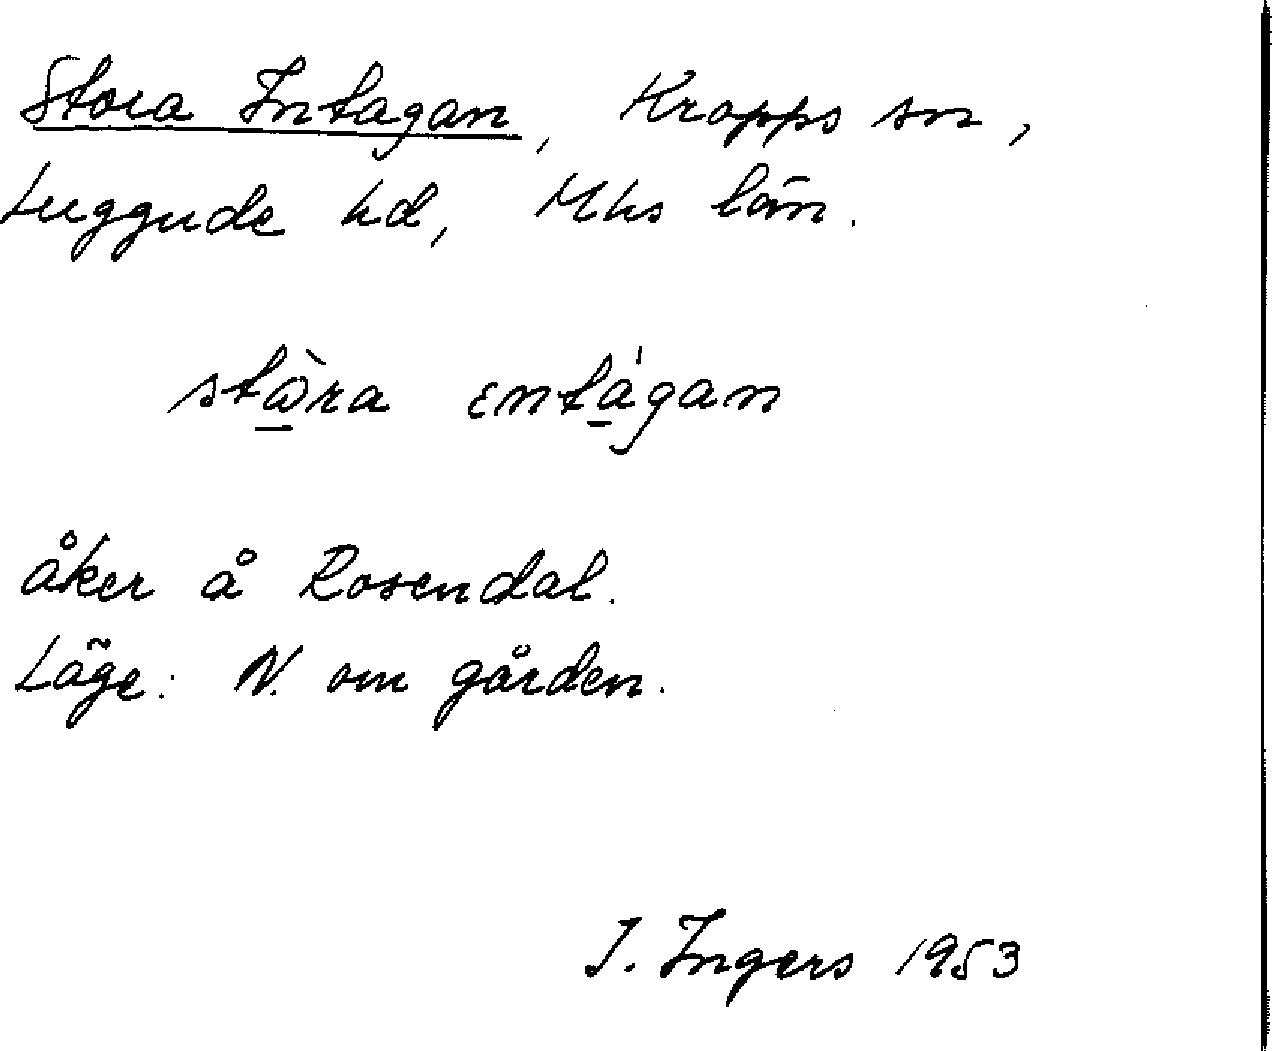 Stora Intagan, Kropps sn,
Luggude hd, Mhs län.
stὼra entágan
åker å Rosendal.
Läge: N. om gården.
I. Ingers 1953